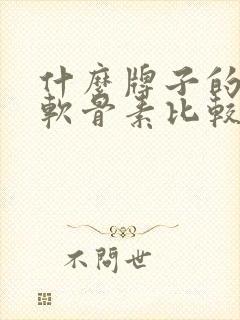 什麼牌子的
軟骨素比較
不問世